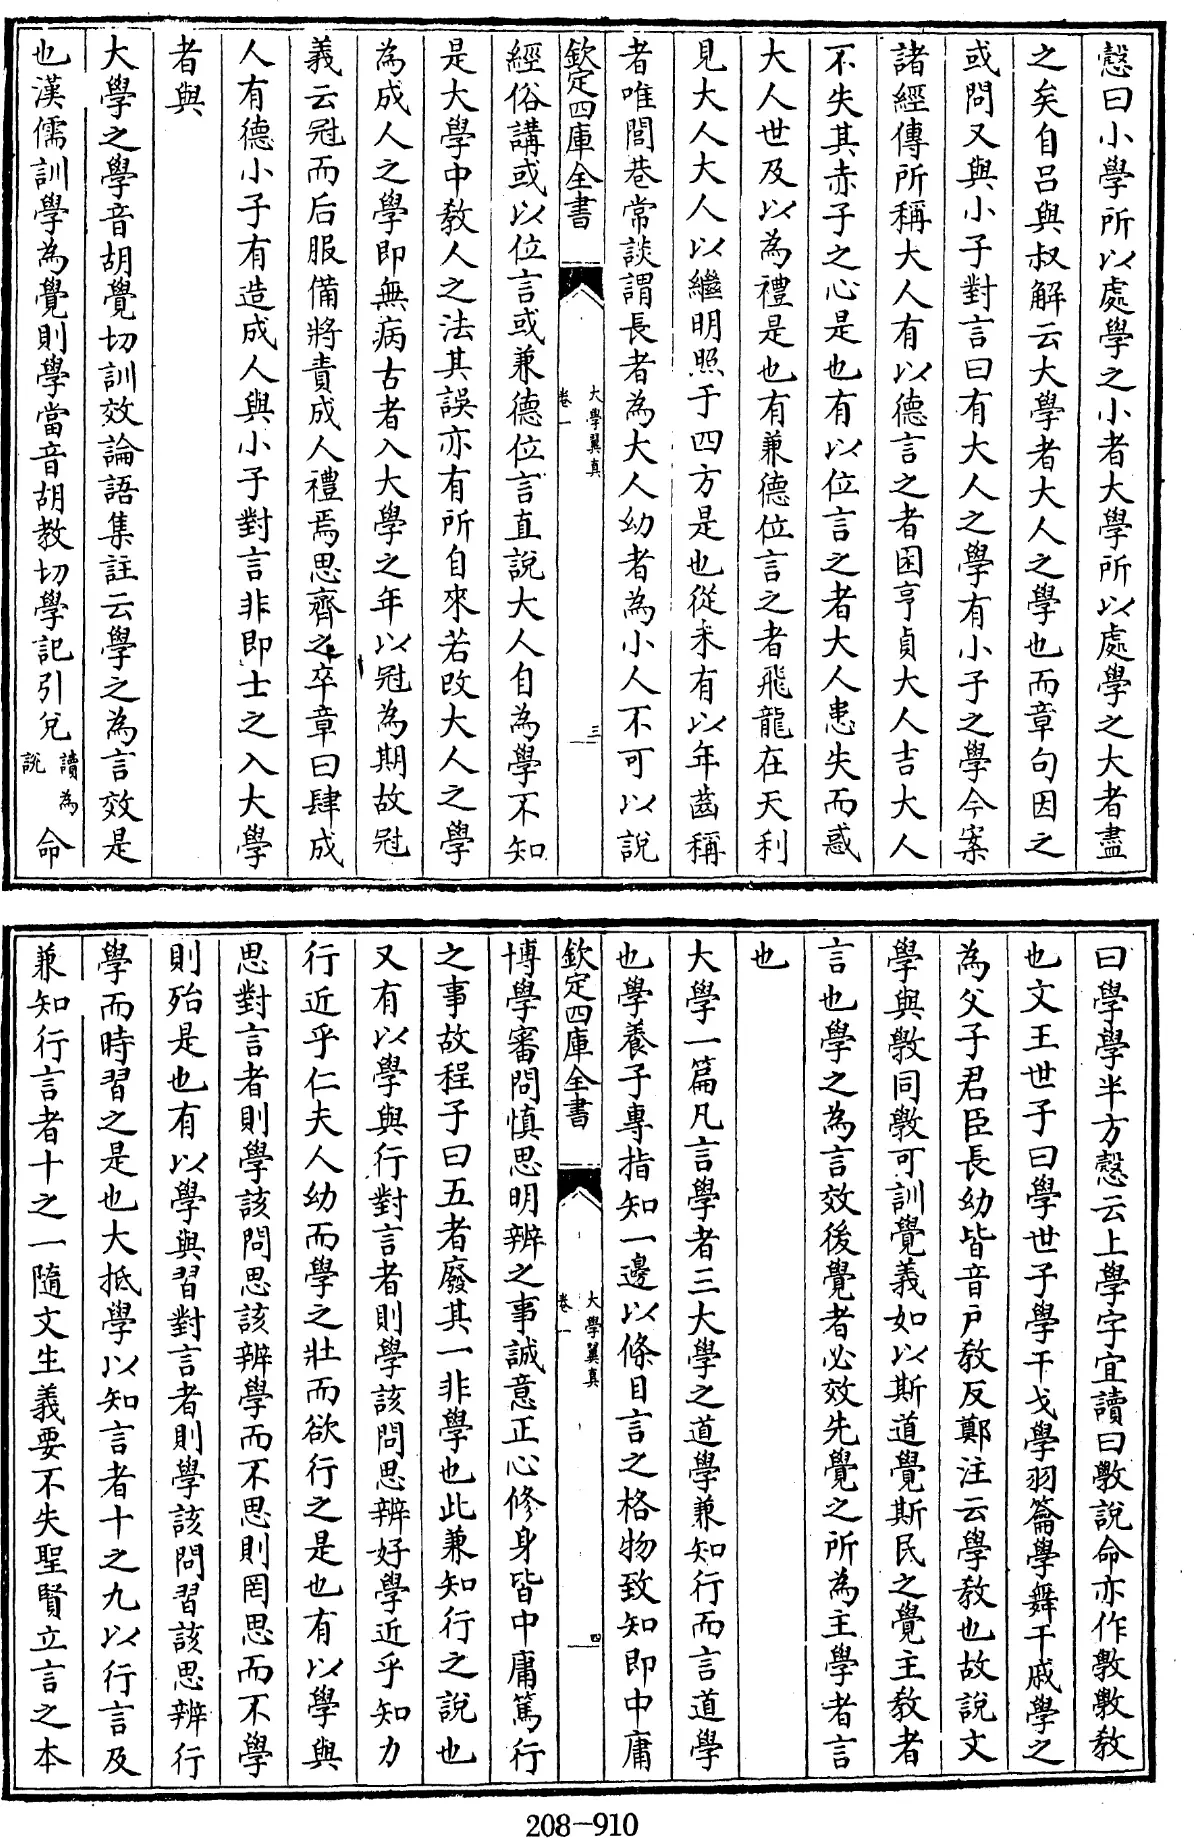 慤曰小學所以處學之小者大學所以處學之大者盡
之矣自呂與叔解云大學者大人之學也而章句因之
或問又與小子對言曰有大人之學有小子之學今案
諸經傳所稱大人有以德言之者困亨貞大人吉大人
不失其赤子之心是也有以位言之者大人患失而惑
大人世及以為禮是也有兼德位言之者飛龍在天利
見大人大人以繼明照于四方是也從未有以年齒稱
者唯閭巷常談謂長者為大人幼者為小人不可以說
欽定四庫全書
大學翼真
卷一
三
經俗講或以位言或兼德位言直說大人自為學不知
是大學中教人之法其誤亦有所自來若改大人之學
為成人之學即無病古者入大學之年以冠為期故冠
義云冠而后服備將責成人禮焉思齊之卒章曰肆成
人有德小子有造成人與小子對言非即士之入大學
者與
大學之學音胡覺切訓效論語集註云學之為言效是
也漢儒訓學為覺則學當音胡教切學記引兌讀為說命
曰學學半方慤云上學字宜讀曰斆說命亦作斆斆教
也文王世子曰學世子學干戈學羽籥學舞干戚學之
為父子君臣長幼皆音戶教反鄭注云學教也故說文
學與斆同斆可訓覺義如以斯道覺斯民之覺主教者
言也學之為言效後覺者必效先覺之所為主學者言
也
大學一篇凡言學者三大學之道學兼知行而言道學
也學養子專指知一邊以條目言之格物致知即中庸
欽定四庫全書
大學翼真
卷一
四
博學審問慎思明辨之事誠意正心修身皆中庸篤行
之事故程子曰五者廢其一非學也此兼知行之說也
又有以學與行對言者則學該問思辨好學近乎知力
行近乎仁夫人幼而學之壯而欲行之是也有以學與
思對言者則學該問思該辨學而不思則罔思而不學
則殆是也有以學與習對言者則學該問習該思辨行
學而時習之是也大抵學以知言者十之九以行言及
兼知行言者十之一隨文生義要不失聖賢立言之本
208-910